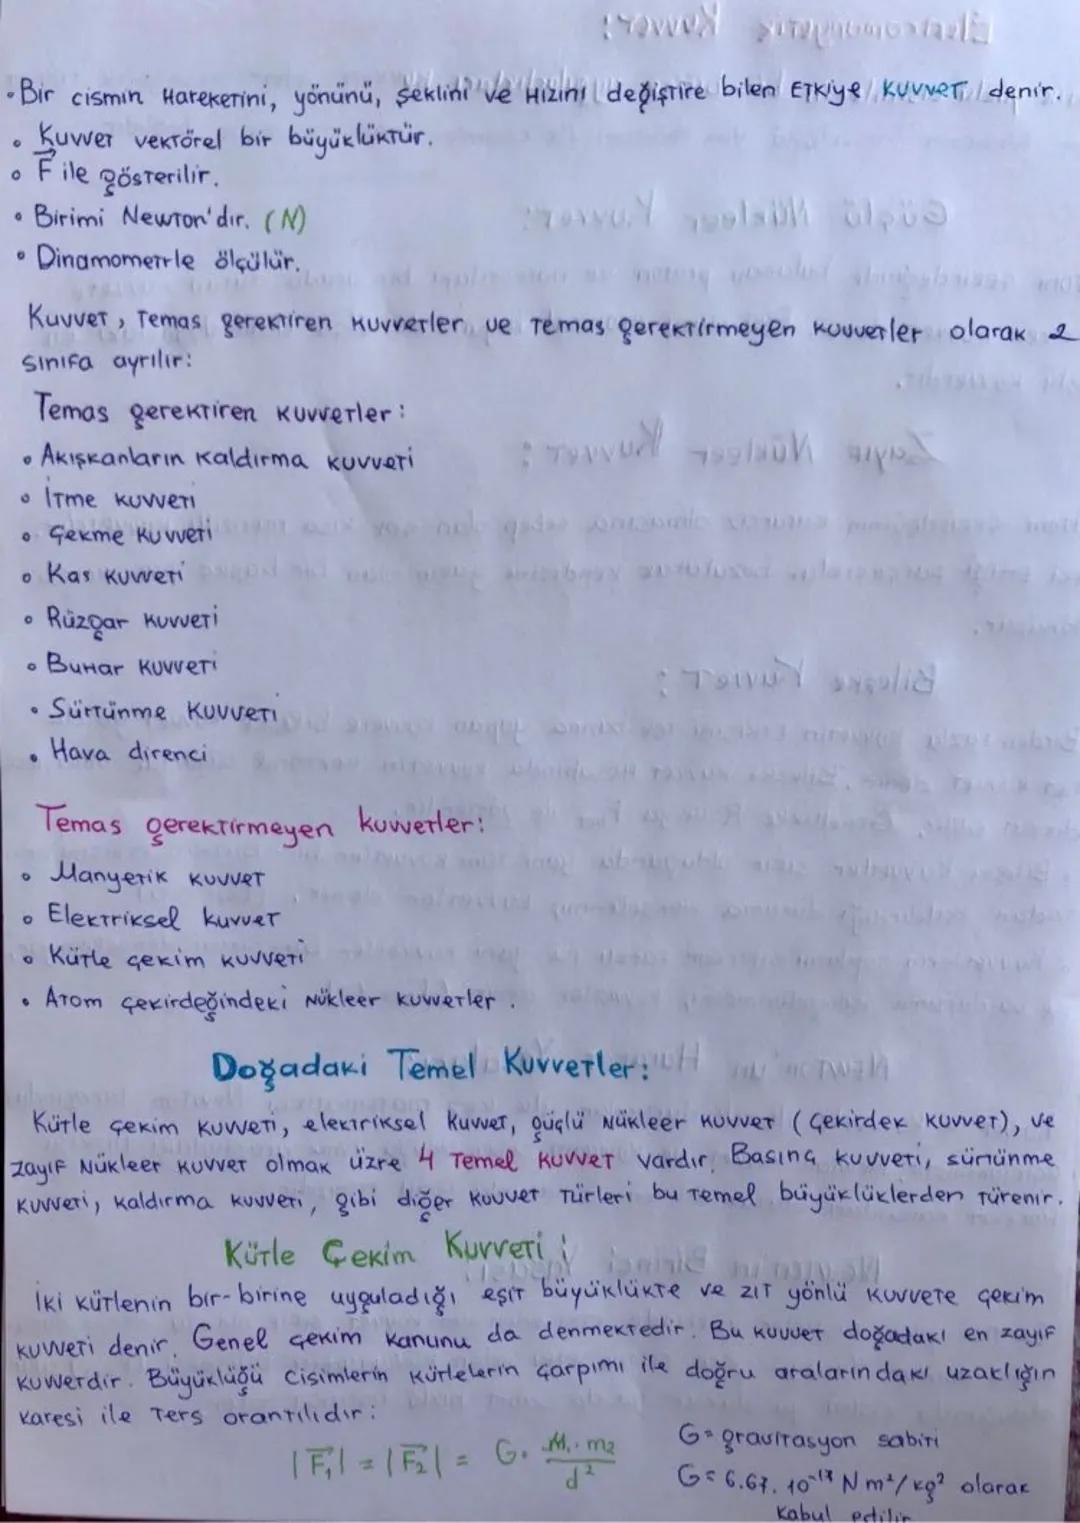 • Bir cismin Hareketini, yönünü, şeklini ve Hızını değiştire bilen Etkiye Kuvvet denir.
• Kuvvet vektörel bir büyüklüktür.
• F ile gösterilir.
• Birimi Newton'dır. (N)
• Dinamometrle ölçülür.
Kuvvet, Temas gerektiren kuvvetler ve Temas gerektirmeyen kuvvetler olarak 2
sınıfa ayrılır:
Temas gerektiren kuvvetler:
• Akışkanların kaldırma kuvveti
• İtme kuvveti
• Çekme kuvveti
• Kas kuvveti
• Rüzgar kuvveti
• Buhar kuvveti
• Sürtünme kuvveti
• Hava direnci
Temas gerektirmeyen kuvvetler:
• Manyetik kuvvet
• Elektriksel kuvvet
• Kütle çekim kuvveti
• Atom çekirdeğindeki Nükleer kuvvetler.
Doğadaki Temel Kuvvetler:
Kütle çekim kuvveti, elektriksel kuvvet, güçlü Nükleer kuvvet (Çekirdek kuvvet), ve
zayıf Nükleer kuvvet olmak üzre 4 Temel kuvvet vardır. Basınç kuvveti, sürtünme
kuvveti, kaldırma kuvveti, gibi diğer kuvvet Türleri bu temel büyüklüklerden türenir.
Kütle Çekim Kuvveti:
İki kütlenin bir-birine uyguladığı eşit büyüklükte ve zıt yönlü kuvvete çekim
kuvveti denir. Genel çekim kanunu da denmektedir. Bu kuvvet doğadaki en zayıf
kuvvetdir. Büyüklüğü cisimlerin kütlelerin çarpımı ile doğru aralarındaki uzaklığın
karesi ile ters orantılıdır:
|F₁| = |F₂| = G. M₁.m₂ / d²
G= gravitasyon sabiti
G= 6.67. 10⁻¹³ Nm²/kg² olarak
kabul edilir